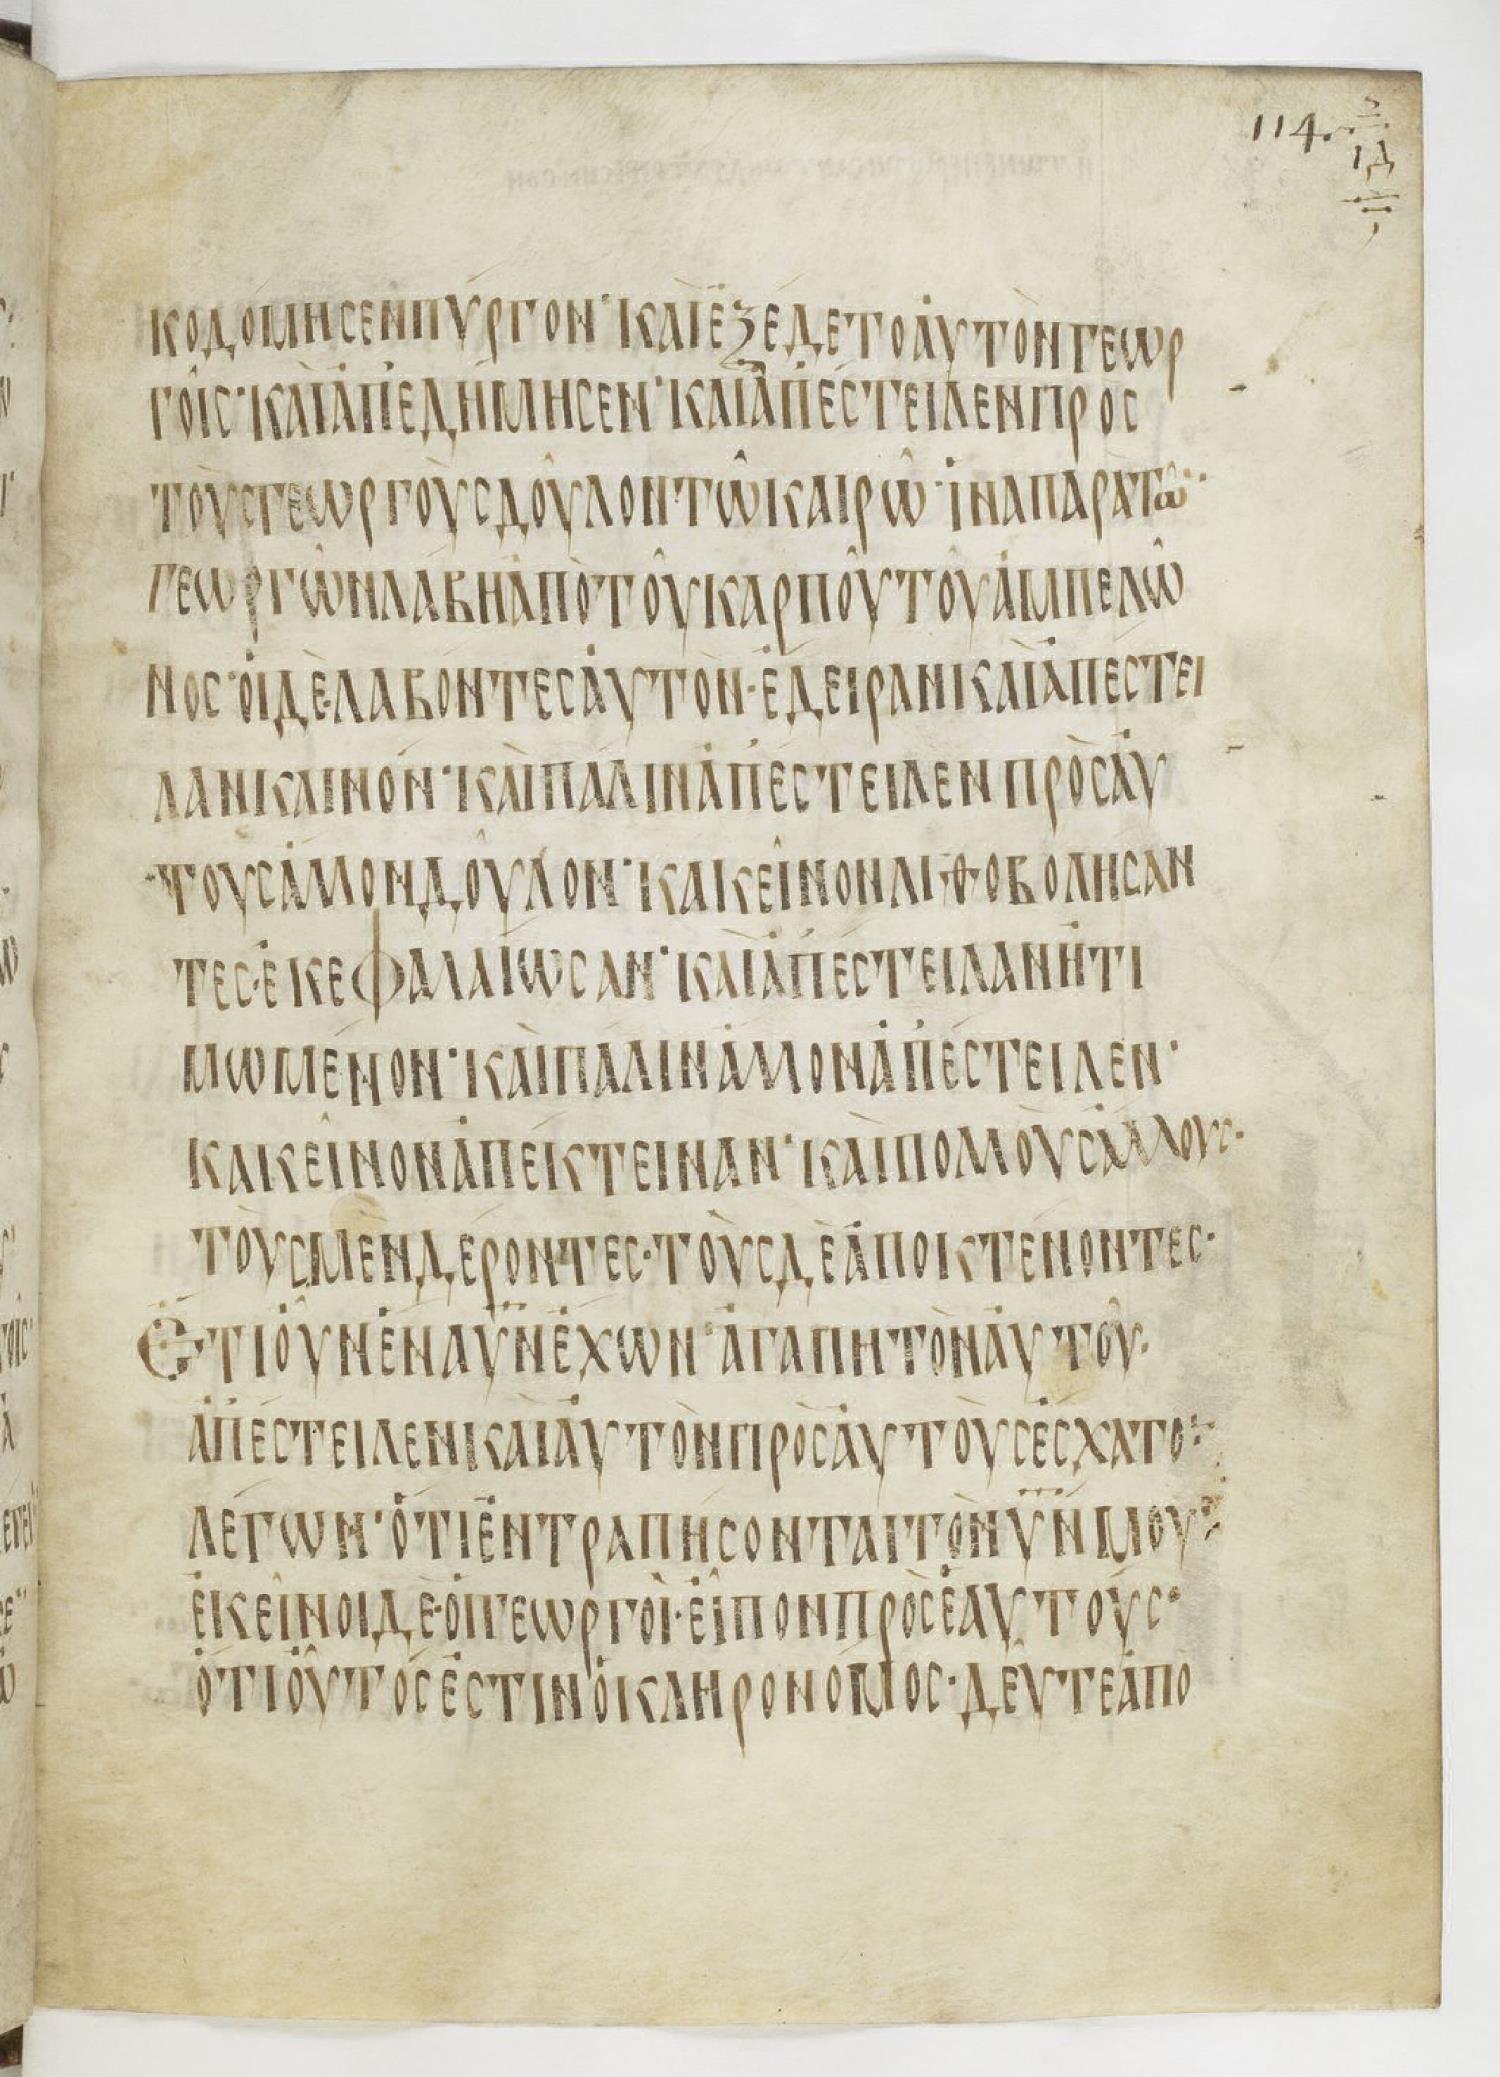 114. ΙΔ
ΚΟΔΟΜΗΣΕΝΠΥΡΓΟΝ· ΚΑΙΕΞΕΔΕΤΟΑΥΤΟΝΓΕΩΡ
ΓΟΙΣ· ΚΑΙΑΠΕΔΗΜΗΣΕΝ· ΚΑΙΑΠΕΣΤΕΙΛΕΝΠΡΟΣ
ΤΟΥΣΓΕΩΡΓΟΥΣΔΟΥΛΟΝΤΩΚΑΙΡΩ· ΙΝΑΠΑΡΑΤΩ··
ΓΕΩΡΓΩΝΛΑΒΗΑΠΟΤΟΥΚΑΡΠΟΥΤΟΥΑΜΠΕΛΩ
ΝΟΣ· ΟΙΔΕΛΑΒΟΝΤΕΣΑΥΤΟΝ· ΕΔΕΙΡΑΝΚΑΙΑΠΕΣΤΕΙ
ΛΑΝΚΑΙΝΟΝ· ΚΑΙΠΑΛΙΝΑΠΕΣΤΕΙΛΕΝΠΡΟΣΑΥ
ΤΟΥΣΑΛΛΟΝΔΟΥΛΟΝ· ΚΑΚΕΙΝΟΝΛΙΘΟΒΟΛΗΣΑΝ
ΤΕΣ· ΕΚΕΦΑΛΑΙΩΣΑΝ· ΚΑΙΑΠΕΣΤΕΙΛΑΝΗΤΙ
ΜΩΜΕΝΟΝ· ΚΑΙΠΑΛΙΝΑΛΛΟΝΑΠΕΣΤΕΙΛΕΝ·
ΚΑΚΕΙΝΟΝΑΠΕΚΤΕΙΝΑΝ· ΚΑΙΠΟΛΛΟΥΣΑΛΛΟΥΣ·
ΤΟΥΣΜΕΝΔΕΡΟΝΤΕΣ· ΤΟΥΣΔΕΑΠΟΚΤΕΝΟΝΤΕΣ·
ΕΤΙΟΥΝΕΝΑΥΝΕΧΩΝ· ΑΓΑΠΗΤΟΝΑΥΤΟΥ·
ΑΠΕΣΤΕΙΛΕΝΚΑΙΑΥΤΟΝΠΡΟΣΑΥΤΟΥΣΕΣΧΑΤΟ··
ΛΕΓΩΝ· ΟΤΙΕΝΤΡΑΠΗΣΟΝΤΑΙΤΟΝΥΝΜΟΥ·
ΕΚΕΙΝΟΙΔΕ· ΟΙΓΕΩΡΓΟΙ· ΕΙΠΟΝΠΡΟΣΕΑΥΤΟΥΣ·
ΟΤΙΟΥΤΟΣΕΣΤΙΝΟΚΛΗΡΟΝΟΜΟΣ· ΔΕΥΤΕΑΠΟ